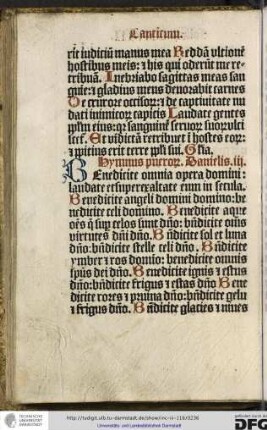 Canticum.
rit iudiciū manus mea Reddā vltionē
hostibus meis: ⁊ his qui oderūt me re-
tribuā. Inebriabo sagittas meas san
guīe: ⁊ gladius meus deuorabit carnes
De cruore occisoꝝ: ⁊ de captiuitate nu
dati inimicoꝝ capitis Laudate gentes
pplm eius: qꝛ sanguinē seruoꝝ suoꝝ vlci
scet᷑. Et vīdictā retribuet ī hostes eoꝝ:
⁊ ppitius erit terre ppli sui. Gl̄a.
Hymnus pueroꝝ. Danielis. iij.
BEnedicite omnia opera domini
laudate et superexaltate eum in secula.
Benedicite angeli domini domino: be
nedicite celi domino. Benedicite aque
oēs q̄ sup celos sunt dn̄o: bn̄dicite om̄s
virtutes dn̄i dn̄o. Bn̄dicite sol et luna
dn̄o: bn̄dicite stelle celi dn̄o. Bn̄dicite
ymber ⁊ ros domīo: benedicite omnis
spūs dei dn̄o. Benedicite ignis ⁊ estus
dn̄o: bn̄dicite frigus ⁊ estas dn̄o Bene
dicite rores ⁊ pruina dn̄o: bn̄dicite gelu
⁊ frigus dn̄o. Bn̄dicite glacies ⁊ niues
TECHNISCHE
UNIVERSITÄT
DARMSTADT
http://tudigit.ulb.tu-darmstadt.de/show/inc-iii-118/0236
Universitäts- und Landesbibliothek Darmstadt
gefördert durch die
DFG